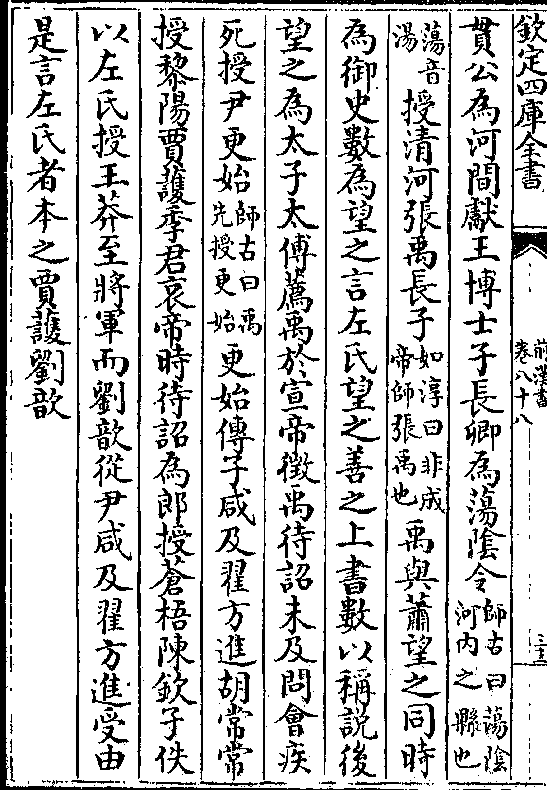 欽定四庫全書
前漢書
卷八十八
三
貫公為河間獻王博士子長卿為蕩陰令師古曰蕩陰河内之縣也
蕩音湯授清河張禹長子如淳曰非成帝師張禹也禹與蕭望之同時
為御史數為望之言左氏望之善之上書數以稱說後
望之為太子太傅薦禹於宣帝徵禹待詔未及問會疾
死授尹更始師古曰禹先授更始更始傳子咸及翟方進胡常常
授黎陽賈護季君哀帝時待詔為郎授蒼梧陳欽子佚
以左氏授王莽至將軍而劉歆從尹咸及翟方進受由
是言左氏者本之賈護劉歆